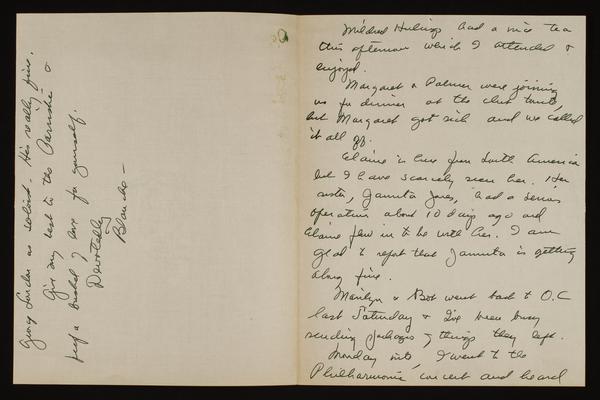 Mildred Hulings had a nice tea
this afternoon which I attended &
enjoyed.
Margaret & Palmer were joining
us for dinner at the club tonite,
but Margaret got sick and we called
it all off.
Elaine is here from South America
but I have scarcely seen her. Her
sister, Jaunita Jones, had a serious
operation about 10 days ago and
Elaine flew in to be with her. I am
glad to report that Jaunita is getting
along fine.
Marilyn & Bob went back to O.C
last Saturday & I've been busy
sending packages of things they left.
Monday nite, I went to the
Philharmonic concert and heard
George as soloist. He's really fine.
Give my best to the &
keep a bushel of love for yourself.
Devotedly
Blanche -